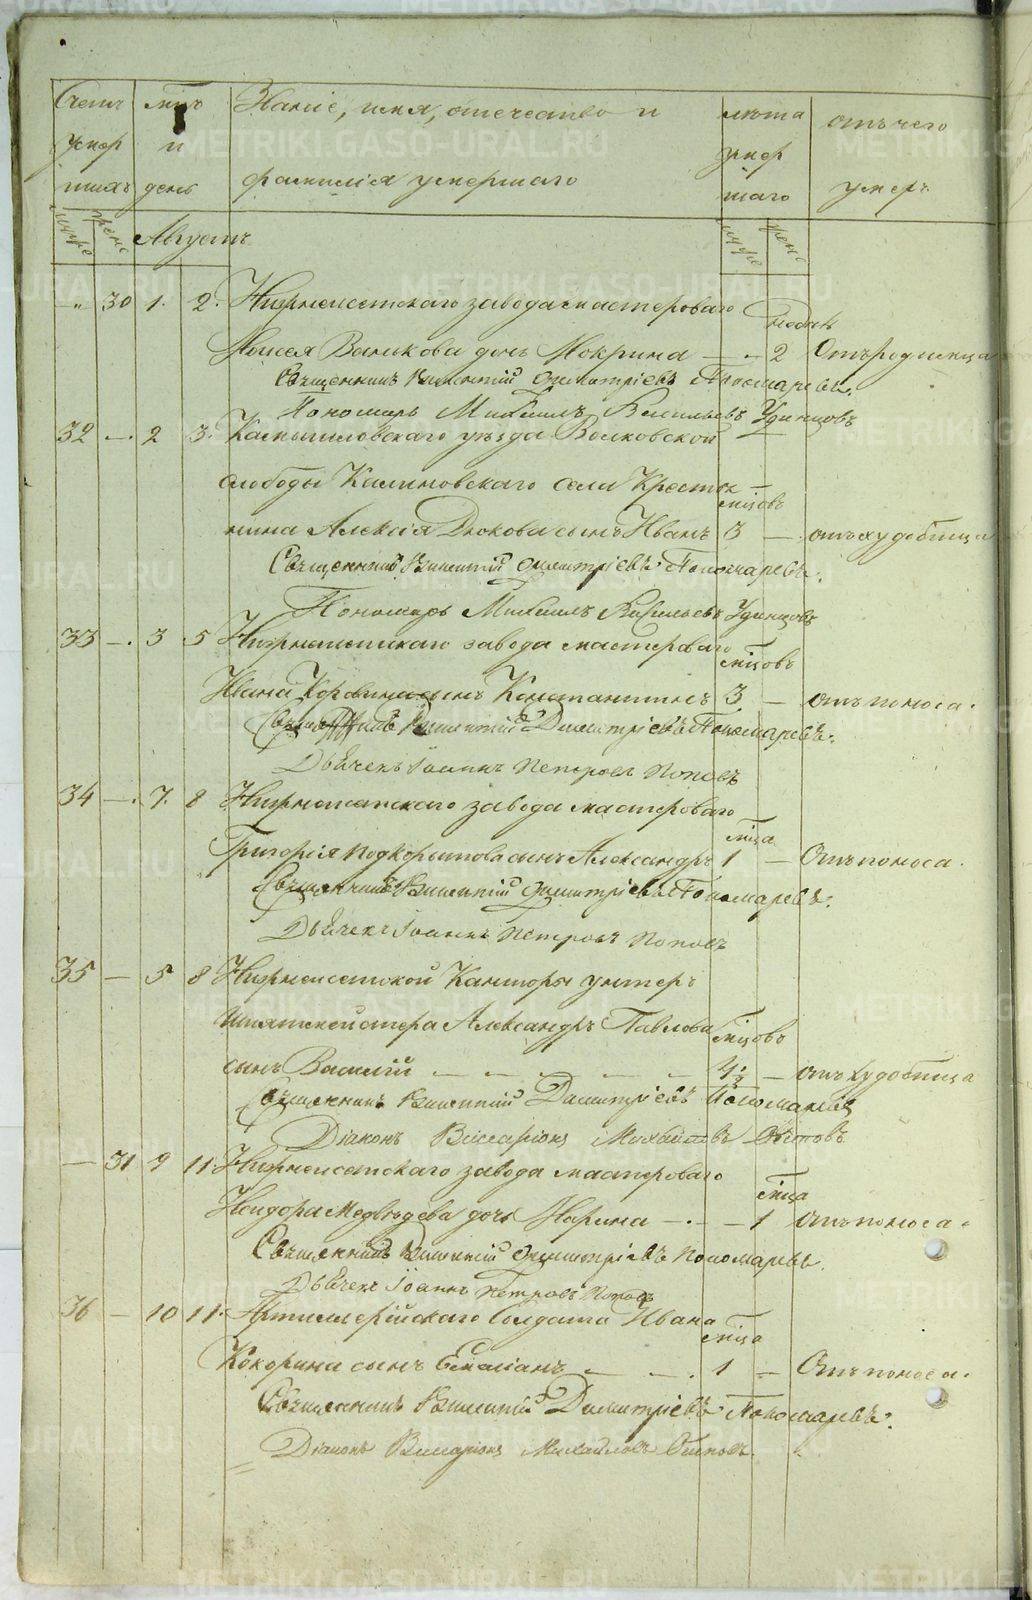 Счетъ мцъ Званіе, имя, отечество и лѣта отъ чего
умер и умер
шихъ день фамилія умершаго шаго умеръ
муж жен Августъ муж жен
" 30 1. 2. Нижнеисетскаго завода мастероваго недѣль
Моисея Ванькова дочь Мокрина — " 2 Отъ родимца
Священникъ Викентій Димитріевъ Пономаревъ.
Пономарь Михаилъ Васильевъ Удинцовъ
32 — 2 3. Камышловскаго уѣзда Волковской
слободы Калиновскаго села Крестья мцовъ
нина Алексія Дюкова сынъ Иванъ 3 — отъ худобища
Священникъ Викентій Димитріевъ Пономаревъ.
Пономарь Михаилъ Васильевъ Удинцовъ
33 — 3 5 Нижнеисетскаго завода мастероваго мцовъ
Ивана Коровина сынъ Константинъ 3. — отъ поноса.
Священникъ Викентій Димитріевъ Пономаревъ.
Дьячекъ Іоаннъ Петровъ Поповъ
34 — 7. 8 Нижнеисетскаго завода мастероваго мца
Григорія Подкорытова сынъ Александръ 1 — Отъ поноса.
Священникъ Викентій Димитріевъ Пономаревъ.
Дьячекъ Іоаннъ Петровъ Поповъ
35 — 5 8 Нижнеисетской Канторы унтеръ
шихтмейстера Александръ Павлова мцовъ
сынъ Василій — — — — — 4½ — отъ худобища
Священникъ Викентій Димитріевъ Пономаревъ
Діаконъ Виссаріонъ Михайловъ
— 31 9 11 Нижнеисетскаго завода мастероваго мца
Исидора Медвѣдева дочь Марина — — 1 отъ поноса.
Священникъ Викентій Димитріевъ Пономаревъ.
Дьячекъ Іоаннъ Петровъ Поповъ
36 — 10 11. Артиллерійскаго Солдата Ивана мца
Кокорина сынъ Емеліанъ — — 1 — Отъ поноса.
Священникъ Викентій Димитріевъ Пономаревъ.
Діаконъ Виссаріонъ Михайловъ
METRIKI.GASO-URAL.RU